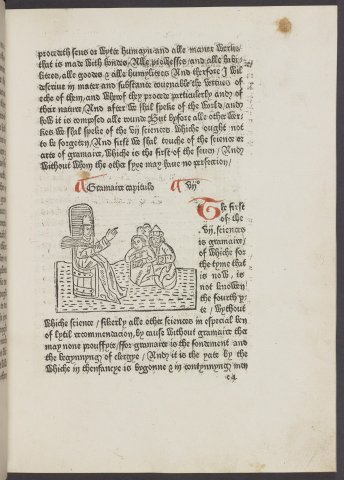 procedeth sens or wytte humayn and alle maner werkis
that is made with hondes / Alle prowesses and alle subti-
litees, alle goodes & alle humylitees And therfore I wil
descrive in mater and substance couenable the vertues of
eche of them, and wherof they procede particulerly and of
their nature / And after we shal speke of the world / and
how it is composed alle round But byfore alle other wer-
kes we shal speke of the vij sciences whiche ought not
to be forgeten / And first we shal touche of the science or
arte of gramaire, whiche is the first of the seuen / And
without whom the other syxe may have no perfection /
Gramaire capitulo vijº
The first
of the
vij. sciences
is gramaire /
of whiche for
the tyme that
is now, is
not knowen
the fourth p
te / without
whiche science / sikerly alle other sciences in especial ben
of lytil recommendacion, by cause without gramaire ther
may none prouffyte / ffor gramaire is the fondement and
the begynnyng of clergye / And it is the yate by the
whiche in thenfancye is bygonne & in contynnyng men
c4